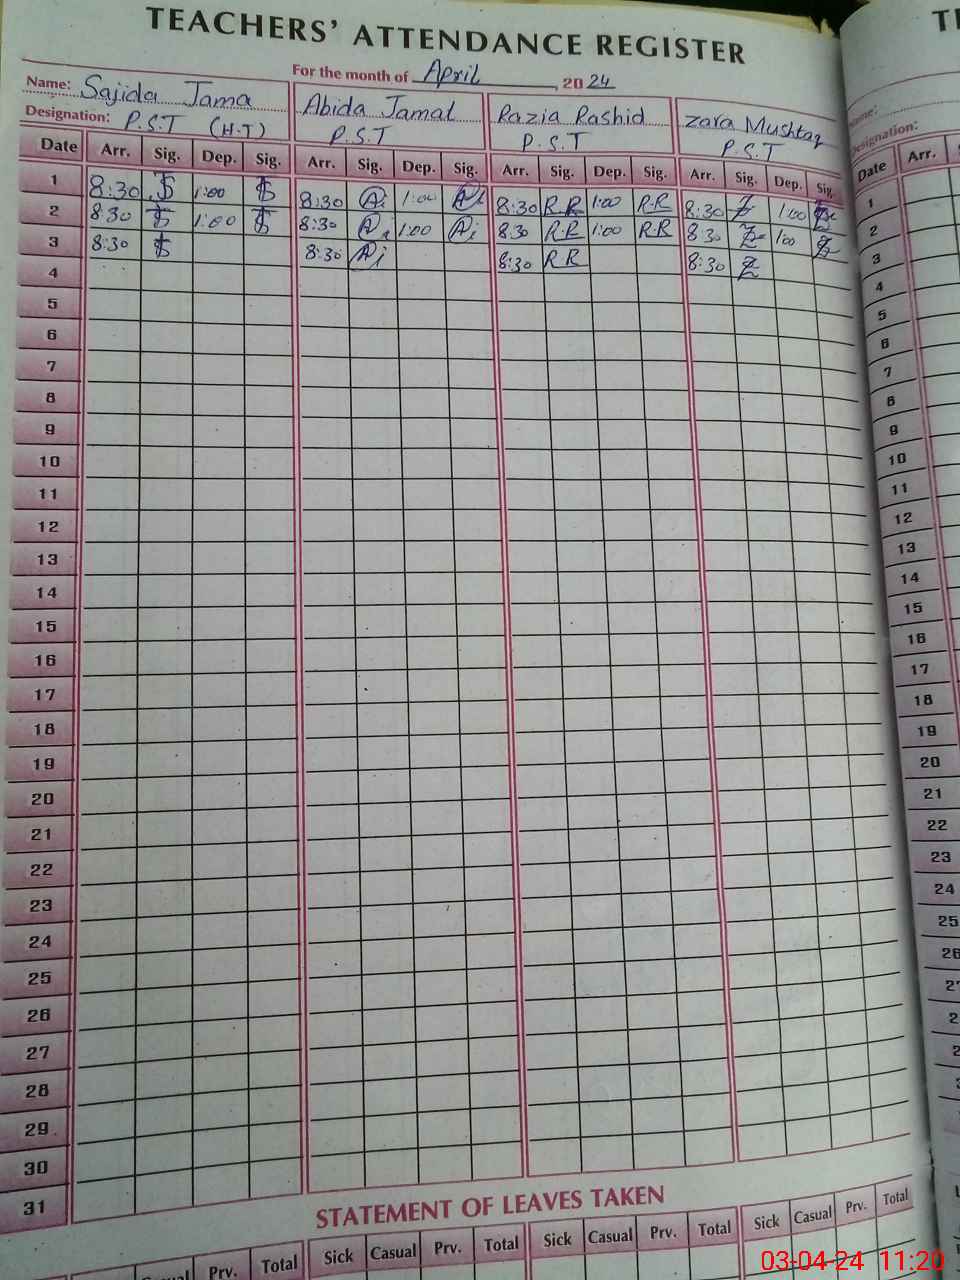 TEACHERS' ATTENDANCE REGISTER
For the month of April, 2024
Name: Sajida Jama Abida Jamal Razia Rashid Zara Mushtaq
Designation: P.S.T (H.T) P.S.T P.S.T P.S.T
Date Arr. Sig. Dep. Sig. Arr. Sig. Dep. Sig. Arr. Sig. Dep. Sig. Arr. Sig. Dep. Sig.
1 8:30 1:00 8:30 1:00 8:30 RR 1:00 R.R 8:30 1:00
2 8:30 1:00 8:30 1:00 8:30 RR 1:00 R.R 8:30 1:00
3 8:30 8:30 8:30 RR 8:30
4
5
6
7
8
9
10
11
12
13
14
15
16
17
18
19
20
21
22
23
24
25
26
27
28
29
30
31
STATEMENT OF LEAVES TAKEN
Casual Prv. Total Sick Casual Prv. Total Sick Casual Prv. Total Sick Casual Prv. Total
Name:
Designation:
Date Arr.
1
2
3
4
5
6
7
8
9
10
11
12
13
14
15
16
17
18
19
20
21
22
23
24
25
03-04-24 11:20